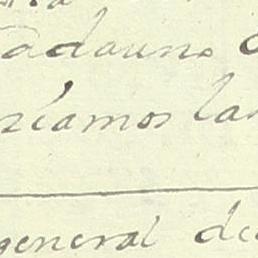 adauno
ríamos la
general de